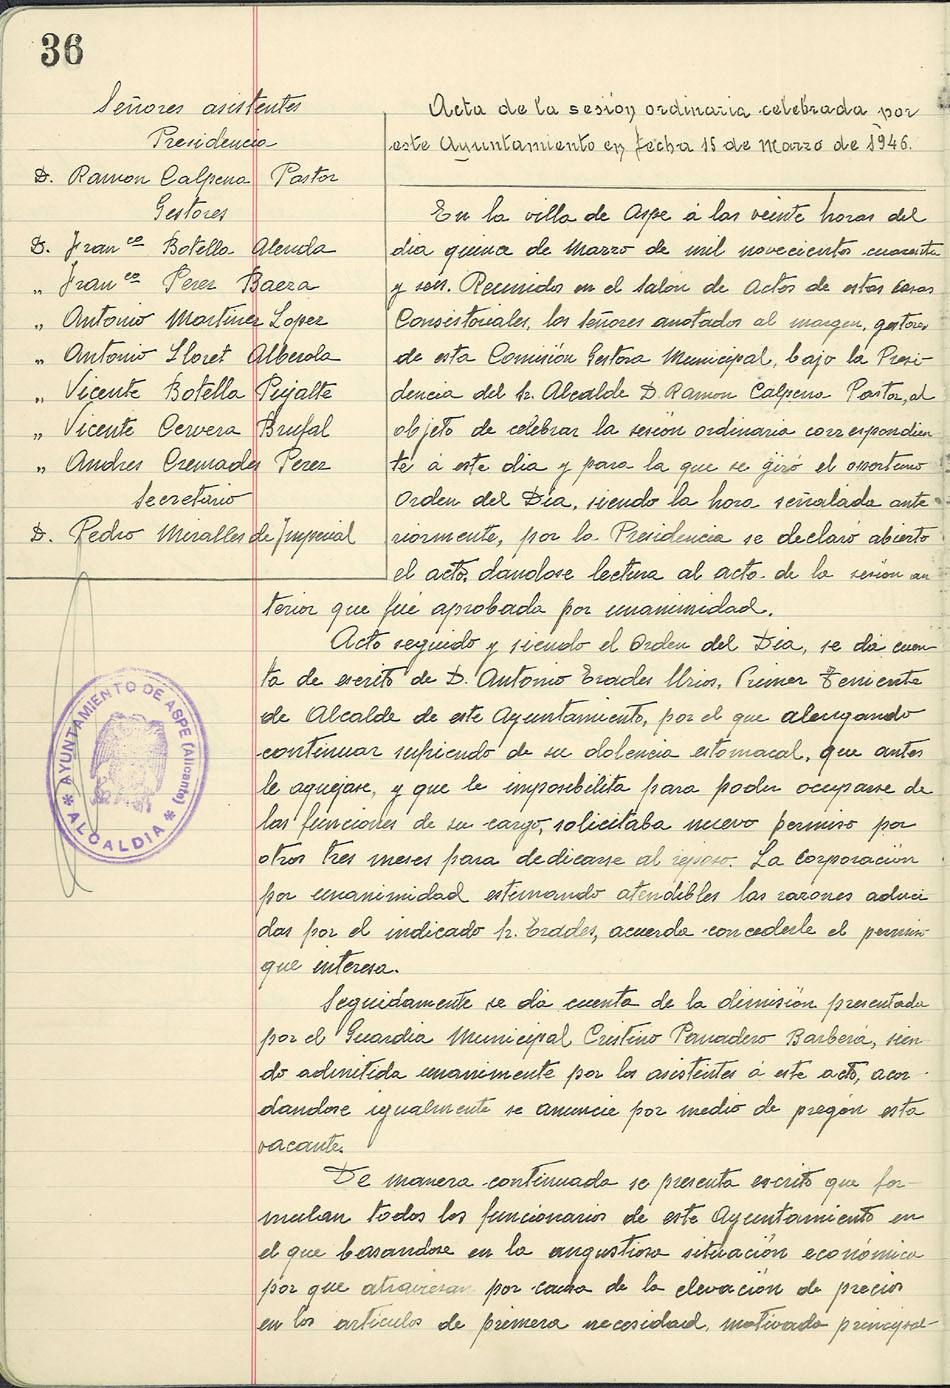 36
Señores asistentes
Presidencia
D. Ramon Calpena Pastor
Gestores
D. Franco Botella Alenda
„ Franco Perez Baeza
„ Antonio Martinez Lopez
„ Antonio Lloret Alberola
„ Vicente Botella Pujalte
„ Vicente Cervera Brufal
„ Andres Cremades Perez
Secretario
D. Pedro Miralles de Imperial
AYUNTAMIENTO DE ASPE (Alicante)
* ALCALDIA *
Acta de la sesión ordinaria celebrada por
este Ayuntamiento en fecha 15 de Marzo de 1946.
En la villa de Aspe á las veinte horas del
dia quince de Marzo de mil novecientos cuarenta
y seis. Reunidos en el Salon de Actos de estas Casas
Consistoriales, los señores anotados al margen, gestores
de esta Comisión Gestora Municipal, bajo la Presi-
dencia del Sr. Alcalde D. Ramon Calpena Pastor, al
objeto de celebrar la sesion ordinaria correspondien
te á este dia y para la que se giró el oportuno
Orden del Dia, siendo la hora señalada ante
riormente, por la Presidencia se declaró abierto
el acto, dandose lectura al acta de la sesion an
terior que fué aprobada por unanimidad.
Acto seguido y siendo el Orden del Dia, se da cuen
ta de escrito de D. Antonio Erades Urios, Primer Teniente
de Alcalde de este Ayuntamiento, por el que alengando
continuar sufriendo de su dolencia estomacal, que antes
le aquejase, y que le imposibilita para poder ocuparse de
las funciones de su cargo, solicitaba nuevo permiso por
otros tres meses para dedicarse al reposo. La Corporación
por unanimidad estimando atendibles las razones aduci
das por el indicado Sr. Erades, acuerda concederle el permiso
que interesa.
Seguidamente se da cuenta de la dimisión presentada
por el Guardia Municipal Cristino Panadero Barberá, sien
do admitida unanimente por los asistentes á este acto, acor-
dandose igualmente se anuncie por medio de pregón esta
vacante.
De manera continuada se presenta escrito que for-
mulan todos los funcionarios de este Ayuntamiento en
el que basandose en la angustiosa situación económica
por que atraviesan por causa de la elevación de precios
en los artículos de primera necesidad, motivada principal-